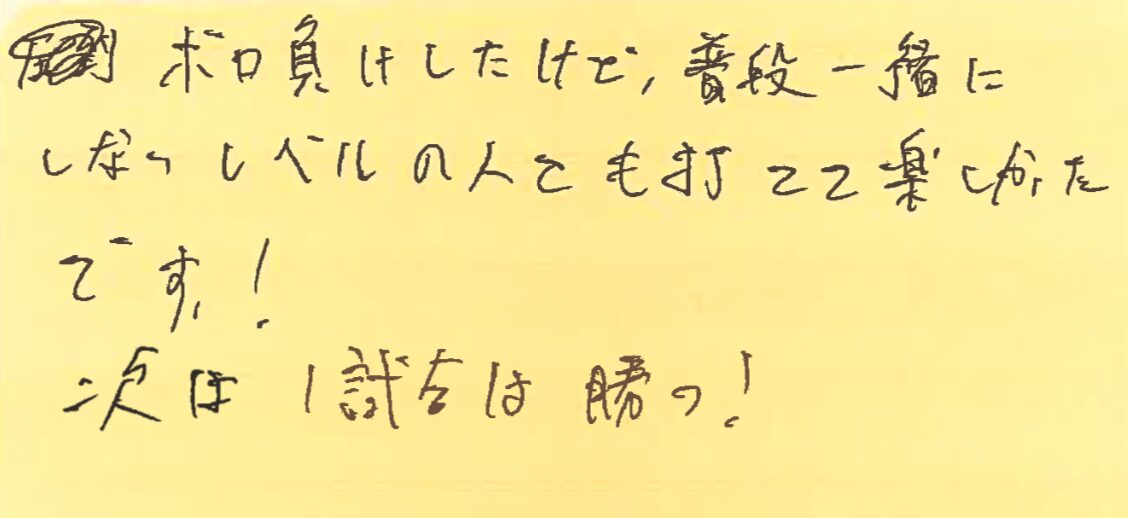 ボロ負けしたけど、普段一緒に
しないレベルの人とも打てて楽しかった
です!
次は1試合は勝つ!